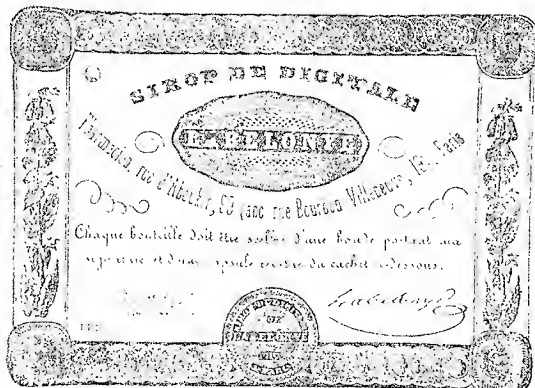 SIROP DE DIGITALE
LABELONYE
Pharmacien, rue d'Aboukir, 99 (anc. rue Bourbon-Villeneuve, 19), Paris
Chaque bouteille doit être scellée d'une bande portant ma
signature et d'une capsule revêtue du cachet ci-dessous.
Labelonye
SIROP DE DIGITALE
DE
LABELONYE
PARIS